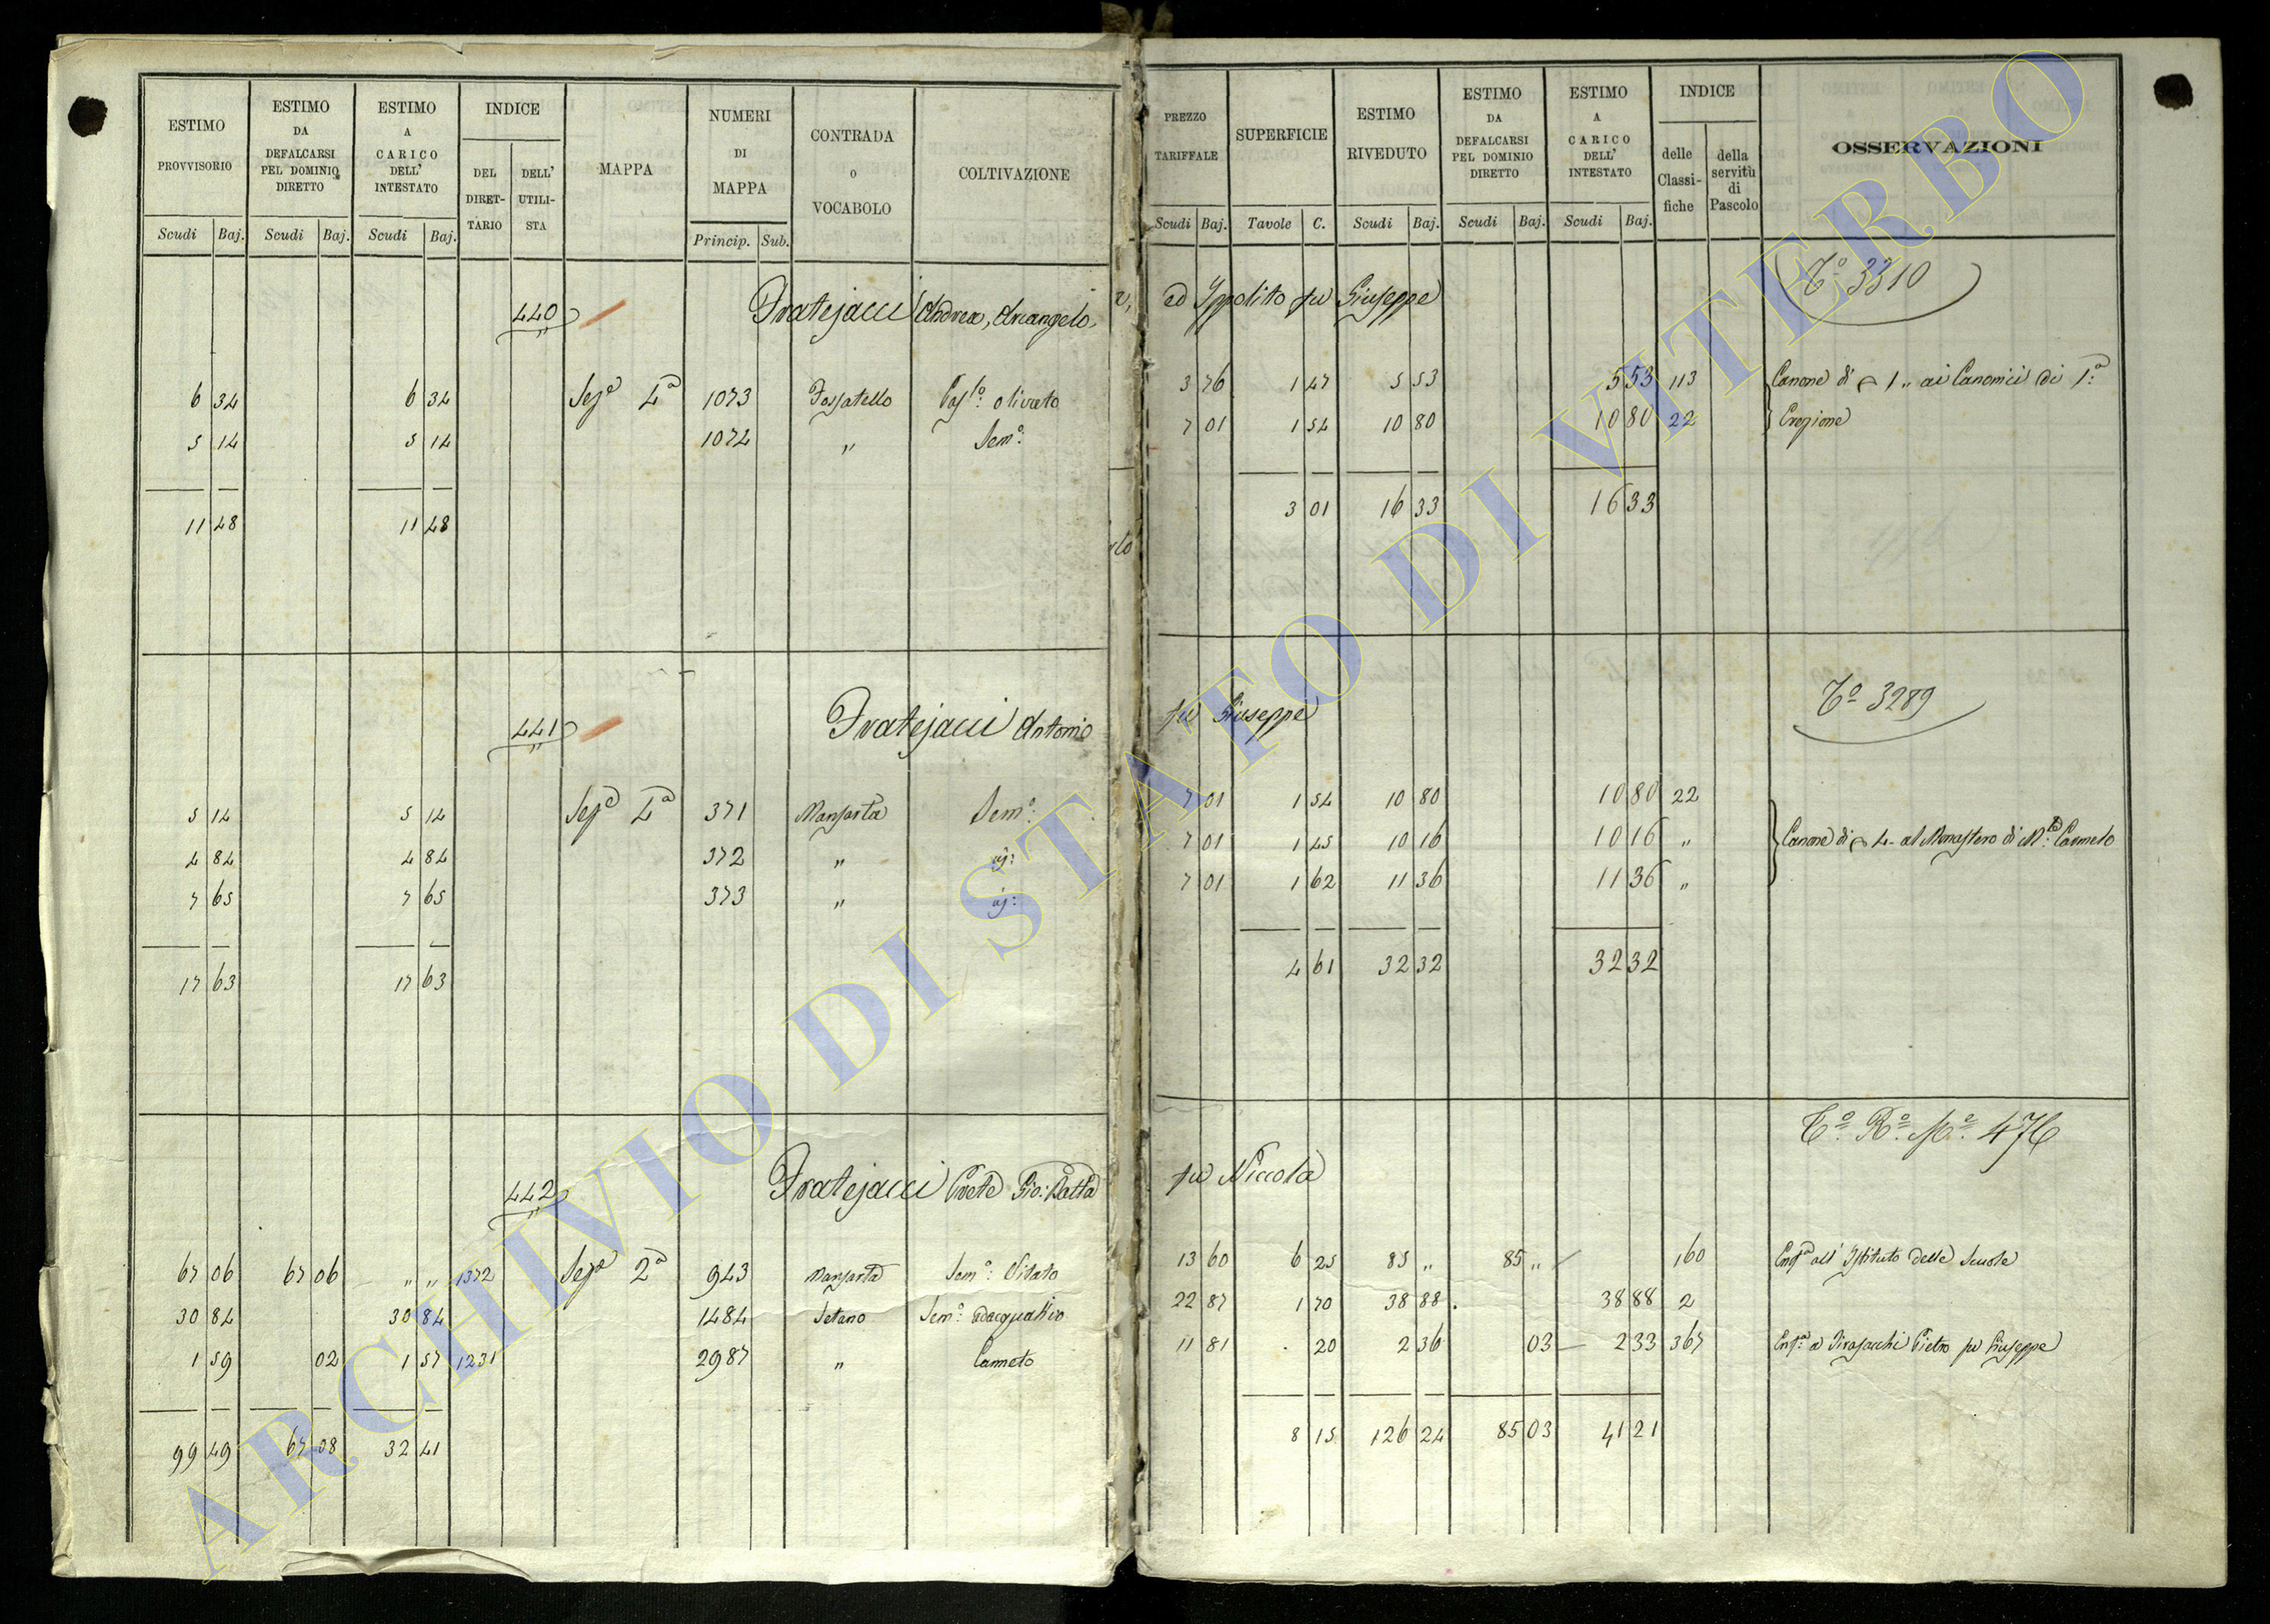 ESTIMO PROVVISORIO
ESTIMO DA DEFALCARSI PEL DOMINIO DIRETTO
ESTIMO A CARICO DELL' INTESTATO
INDICE
DEL DIRET-TARIO
DELL' UTILI-STA
MAPPA
NUMERI DI MAPPA
CONTRADA O VOCABOLO
COLTIVAZIONE
Scudi Baj. Scudi Baj. Scudi Baj. Princip. Sub.
PREZZO TARIFFALE
SUPERFICIE
ESTIMO RIVEDUTO
ESTIMO DA DEFALCARSI PEL DOMINIO DIRETTO
ESTIMO A CARICO DELL' INTESTATO
INDICE
delle Classi-fiche
della servitù di Pascolo
OSSERVAZIONI
Scudi Baj. Tavole C. Scudi Baj. Scudi Baj. Scudi Baj.
440 Fratejacci Andrea, Arcangelo, ed Ippolito fu Giuseppe Tº 3310
6 34 6 34 Sezº 4ª 1073 Fossatello Casº: olivato 3 76 1 47 5 53 5 53 113 Canone di 1 „ ai Canonici di 1ª:
5 14 5 14 1074 „ Semº: 7 01 1 54 10 80 10 80 22 Erezione
11 48 11 48 3 01 16 33 16 33
441 Fratejacci Antonio fu Giuseppe Tº 3289
5 14 5 14 Sezº 4ª 371 Mansarta Semº: 7 01 1 54 10 80 10 80 22
4 84 4 84 372 „ 7 01 1 45 10 16 10 16 „ Canone di 4 - al Monastero di Mte: Carmelo
7 65 7 65 373 „ 7 01 1 62 11 36 11 36 „
17 63 17 63 4 61 32 32 32 32
442 Fratejacci Prete Gio: Batta fu Niccola Tº: Rº: Mº: 476
67 06 67 06 „ „ 1372 Sezº 2ª 943 Mansarta Semº: Vitato 13 60 6 25 85 „ 85 „ 160 Enfª all' Istituto delle Scuole
30 84 30 84 1484 Setano Semº: adacquativo 22 87 1 70 38 88 38 88 2
1 59 02 1 57 1231 2987 „ Canneto 11 81 . 20 2 36 03 2 33 367 Enfª: a Pietro fu Giuseppe
99 49 67 08 32 41 8 15 126 24 85 03 41 21
ARCHIVIO DI STATO DI VITERBO